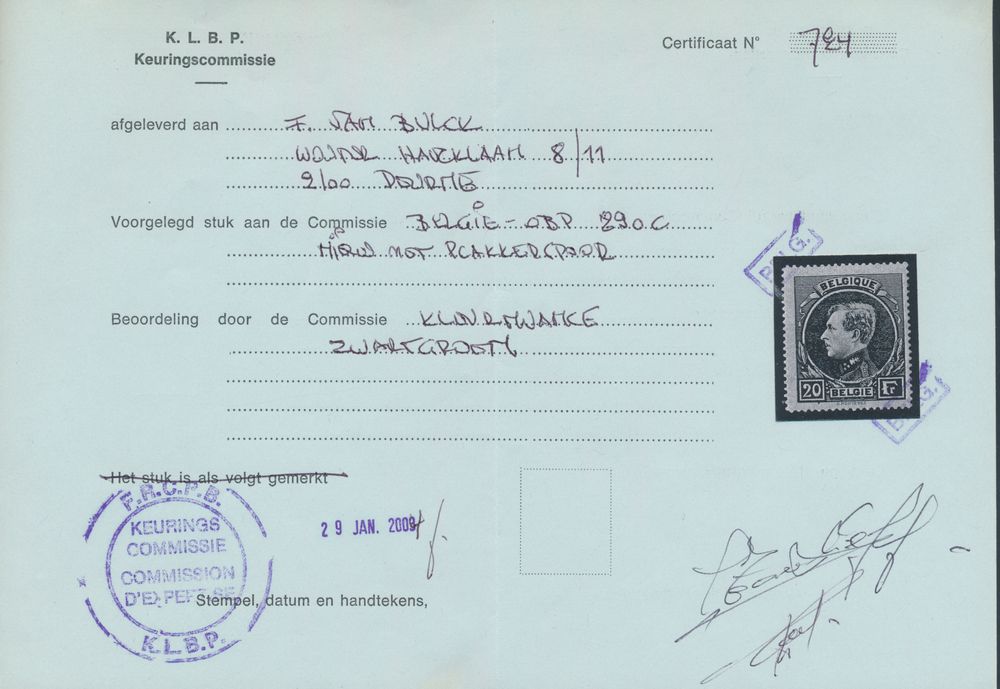 K. L. B. P.
Keuringscommissie
Certificaat N° 724
afgeleverd aan F. VAN BULCK
8/11
2100 DEURNE
Voorgelegd stuk aan de Commissie BELGIË - OBP 290C
NIEUW MET PLAKKERSPOOR
Beoordeling door de Commissie KLEURNUANCE
ZWARTGROEN
BELGIQUE
20 BELGIE Fr
Het stuk is als volgt gemerkt
F.R.C.P.B.
KEURINGS
COMMISSIE
COMMISSION
D'EXPERTISE
K.L.B.P.
29 JAN. 2004
Stempel, datum en handtekens,